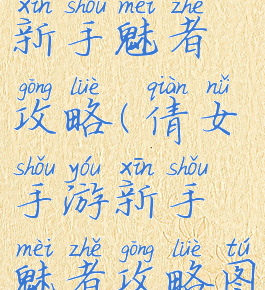 xīn shǒu mèi zhě
新手魅者
gōng lüè qiàn nǚ
攻略(倩女
shǒu yóu xīn shǒu
手游新手
mèi zhě gōng lüè tú
魅者攻略图